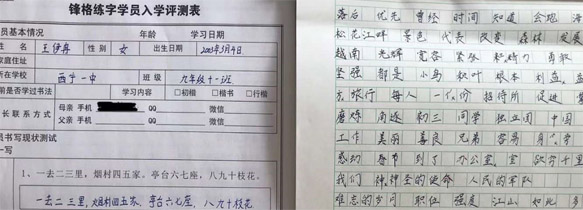 锋格练字学员入学评测表
年龄 学习日期
员基本情况
名 王伊冉 性 别 女 出生日期 2003年3月4日
家庭住址
所在学校 西宁一中 班 级 九年级十一班
前是否学过书法 学习内容 □初楷 □楷书 □行楷
长联系方式 母亲 手机 QQ 微信
父亲 手机 QQ 微信
员书写现状测试
一写
1、一去二三里，烟村四五家。亭台六七座，八九十枝花。
一去二三里，烟村四五家，亭台六七座，八九十枝花
落后 优先 曾经 时间 知道 会跑
松花江畔 景色 代表 改变 森林 发展
越南 光辉 宽容 紧张 勇敢
坚强 都是 小鸟 秋叶 根本 利益
去旅行 每人 一份 招待所 促进
磨炼 南迁 初三 同学 独立团 中国
工作 美丽 善良 兄弟 容易
感动 春节 到了 办公室 欲穷千里
我们 神圣的使命 人民的军队
难忘的岁月 职位 强度 江山 如此 多